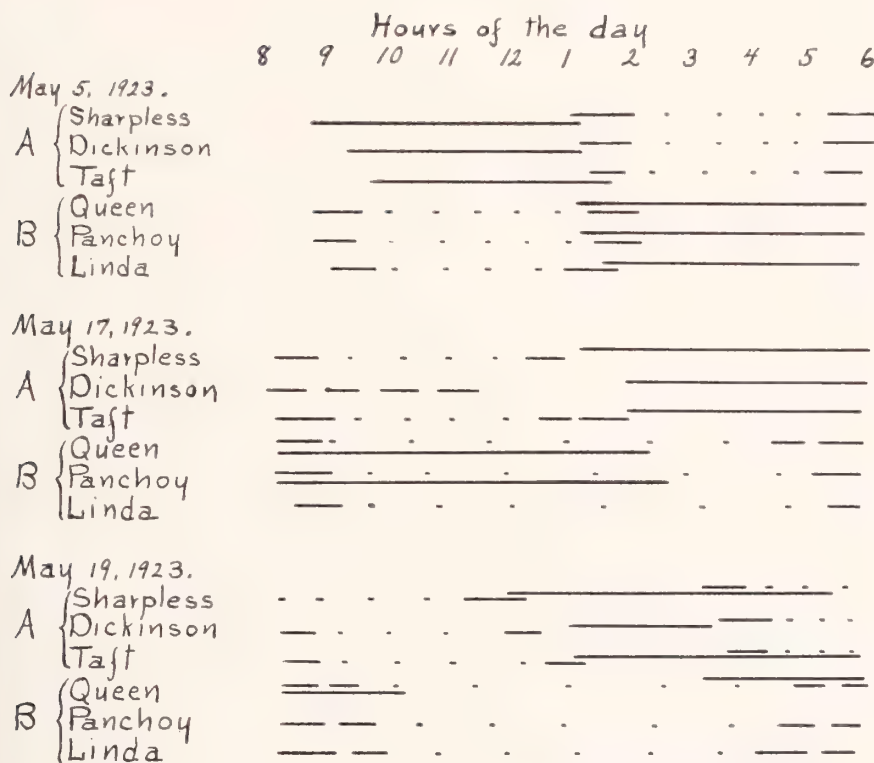 Hours of the day
8 9 10 11 12 1 2 3 4 5 6
May 5, 1923.
A Sharpless
Dickinson
Taft
B Queen
Panchoy
Linda
May 17, 1923.
A Sharpless
Dickinson
Taft
B Queen
Panchoy
Linda
May 19, 1923.
A Sharpless
Dickinson
Taft
B Queen
Panchoy
Linda